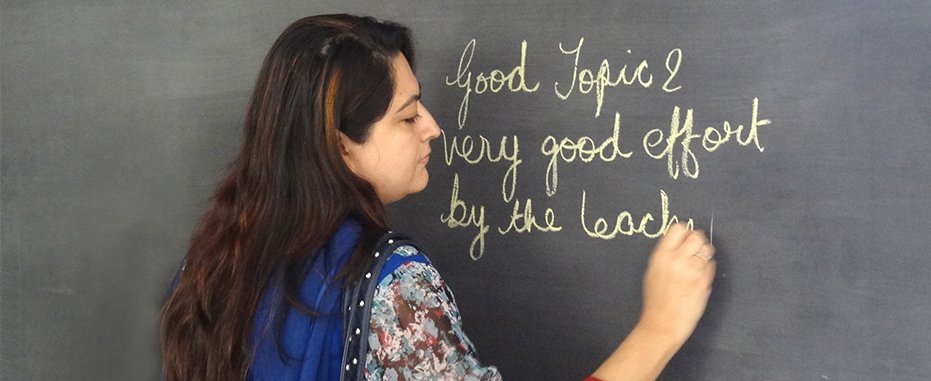 Good Topic &
very good effort
by the teache